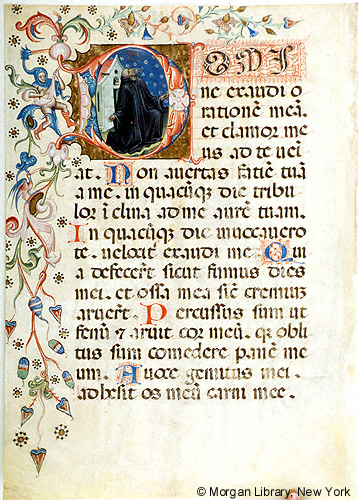 DOMI
ne exaudi o
rationē meā.
et clamor me
us ad te ueni
at. Non auertas faciē tuā
a me. in quacūq; die tribu
lor iclina ad me aurē tuam.
In quacūq; die inuocauero
te. uelocit exaudi me. Qui
a defecer̄t sicut fumus dies
mei. et ossa mea sic̄ cremiuz
aruer̄t. Percussus sum ut
fenū ⁊ aruit cor meū. q; obli
tus sum comedere panē me
um. A uoce gemitus mei.
adhesit os meū carni mee.
© Morgan Library, New York